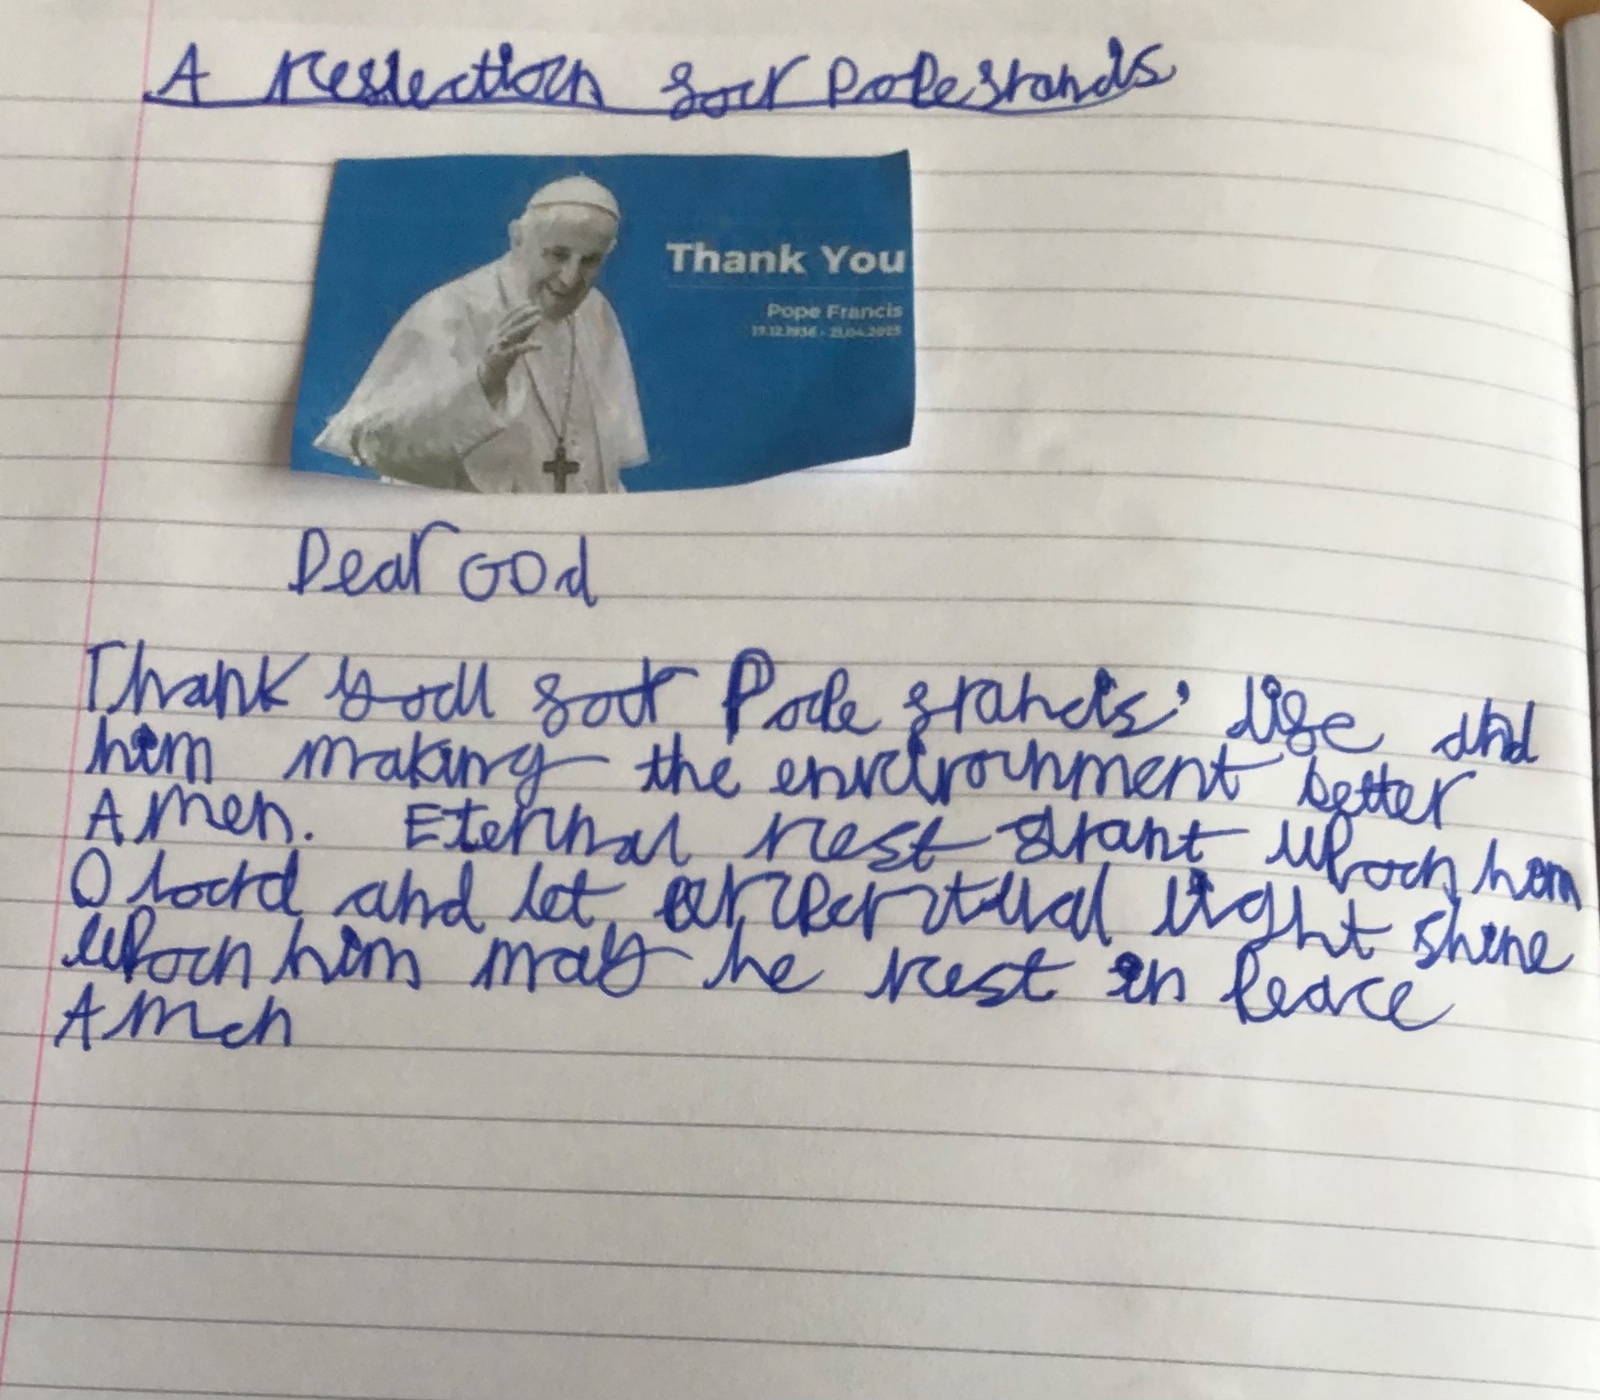 A reflection for Pope francis
Thank You
Pope Francis
17.12.1936 - 21.04.2025
Dear GOD
Thank you for Pope francis' life and
him making the environment better
Amen. Eternal rest grant upon him
O lord and let perpertual light shine
upon him may he rest in peace
Amen